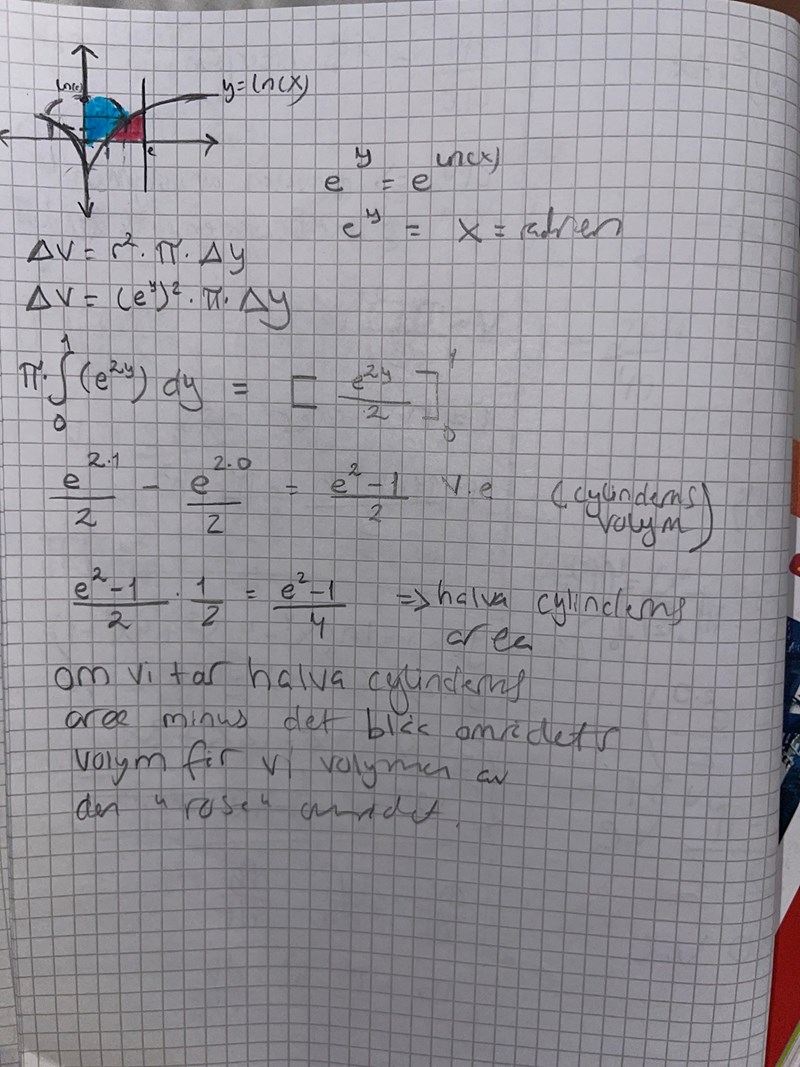 y = ln(x)
e
e^y = e^ln(x)
e^y = x = radien
ΔV = r² · π · Δy
ΔV = (e^y)² · π · Δy
π · ∫₀¹ (e^2y) dy = [ e^2y / 2 ]₀¹
e^2·1 / 2 - e^2·0 / 2 = e² - 1 / 2 v.e (cylinderns volym)
e² - 1 / 2 · 1 / 2 = e² - 1 / 4 => halva cylinderns
area
om vi tar halva cylinderns
area minus det blåa områdets
volym får vi volymen av
den "rosa" området.